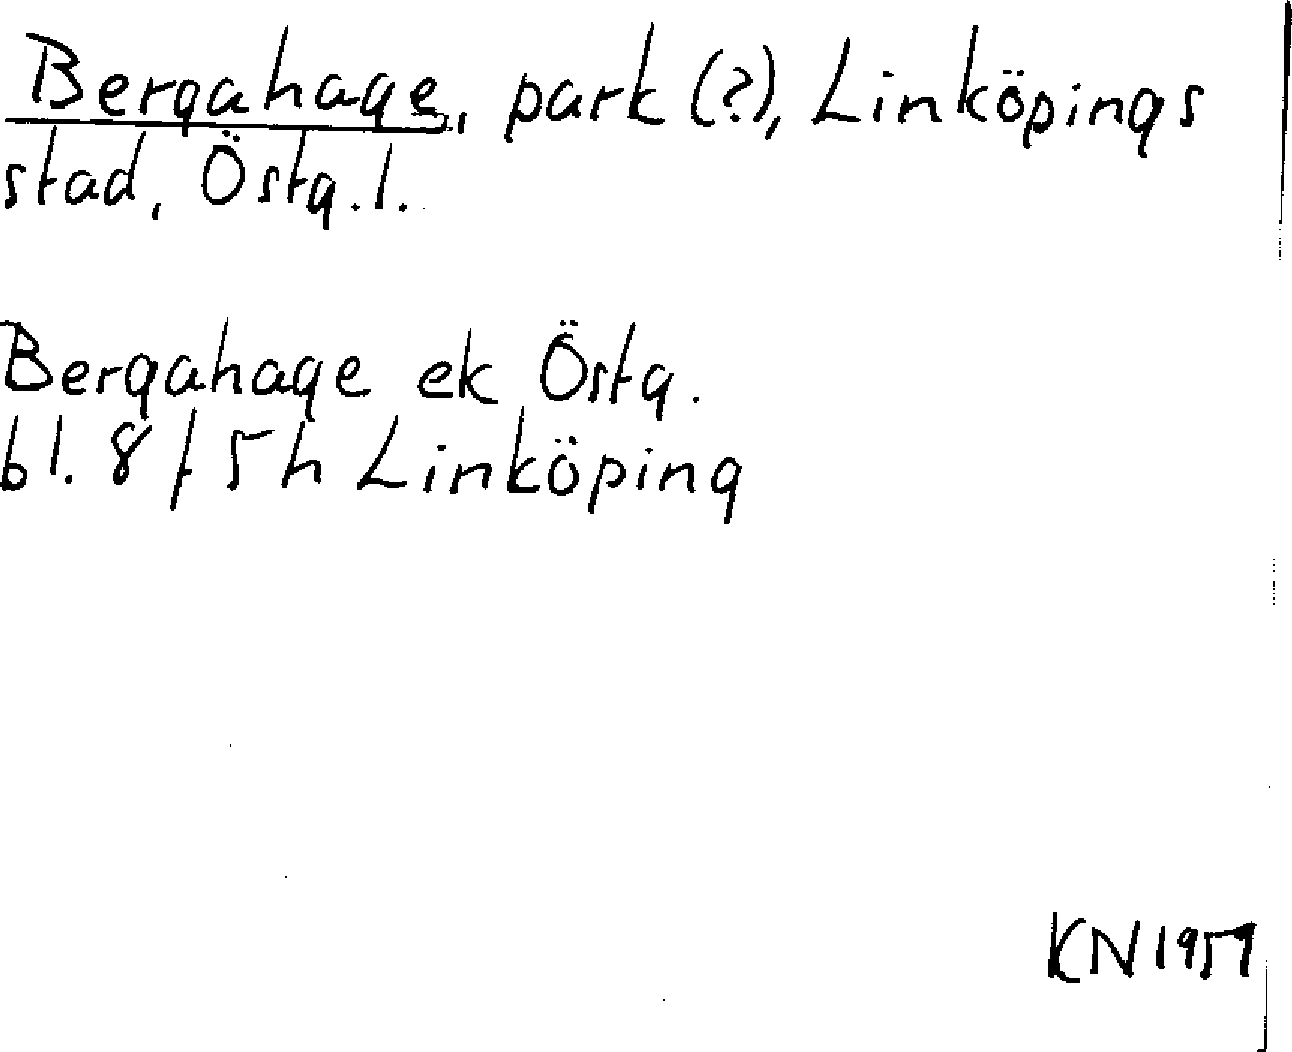 Bergahage, park (?), Linköpings
stad, Östg. l.
Bergahage ek Östg.
bl. 8 f 5h Linköping
KN 1959